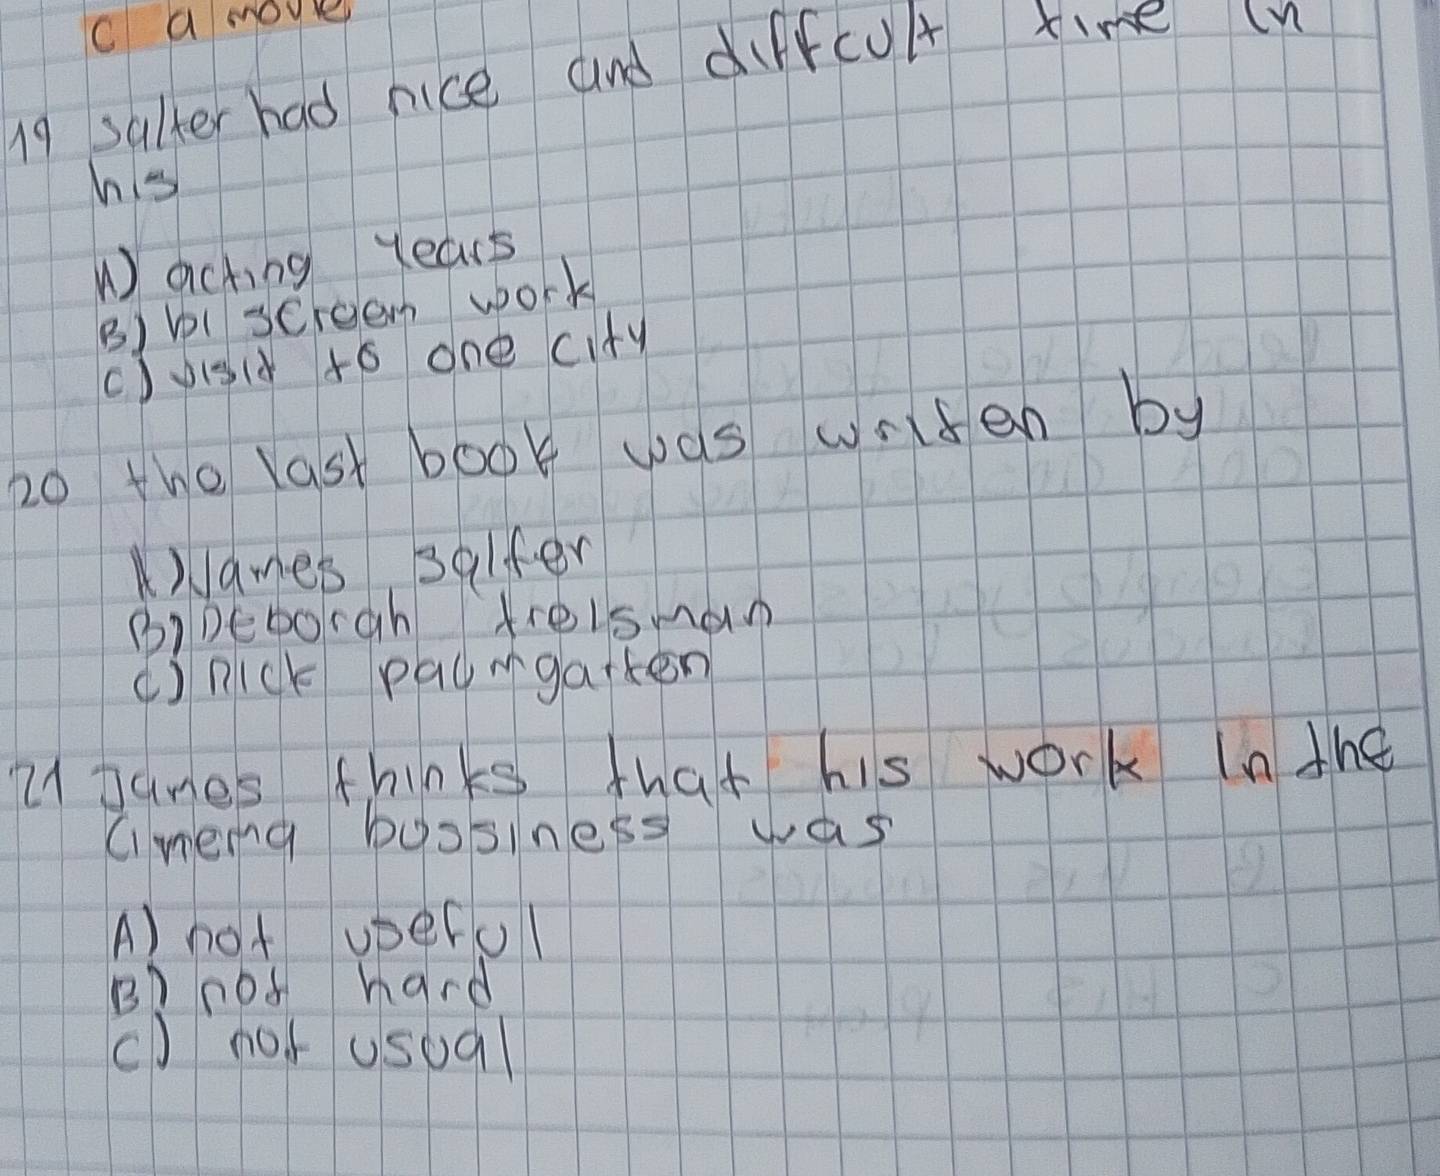 c a movie
19 salter had nice and diffcult time in
his
A) acting years
B) bi screem work
C) visit to one city
20 the last book was writen by
A) James salter
B) Deborah treisman
C) nick paumgarten
21 James thinks that his work in the
cimema bussiness was
A) not useful
B) not hard
C) not usual